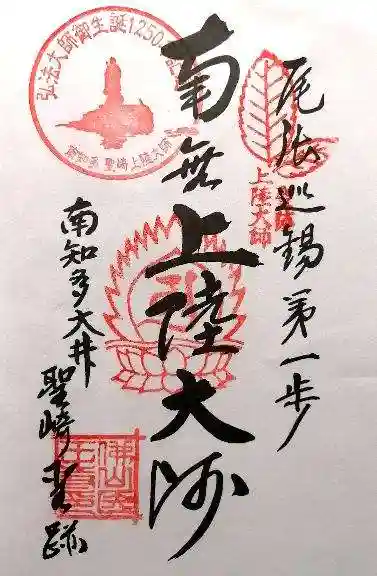 尾張巡錫第一歩
上陸大師
南無上陸大師
弘法大師御生誕1250
聖崎上陸大師
南知多大井
聖崎霊跡